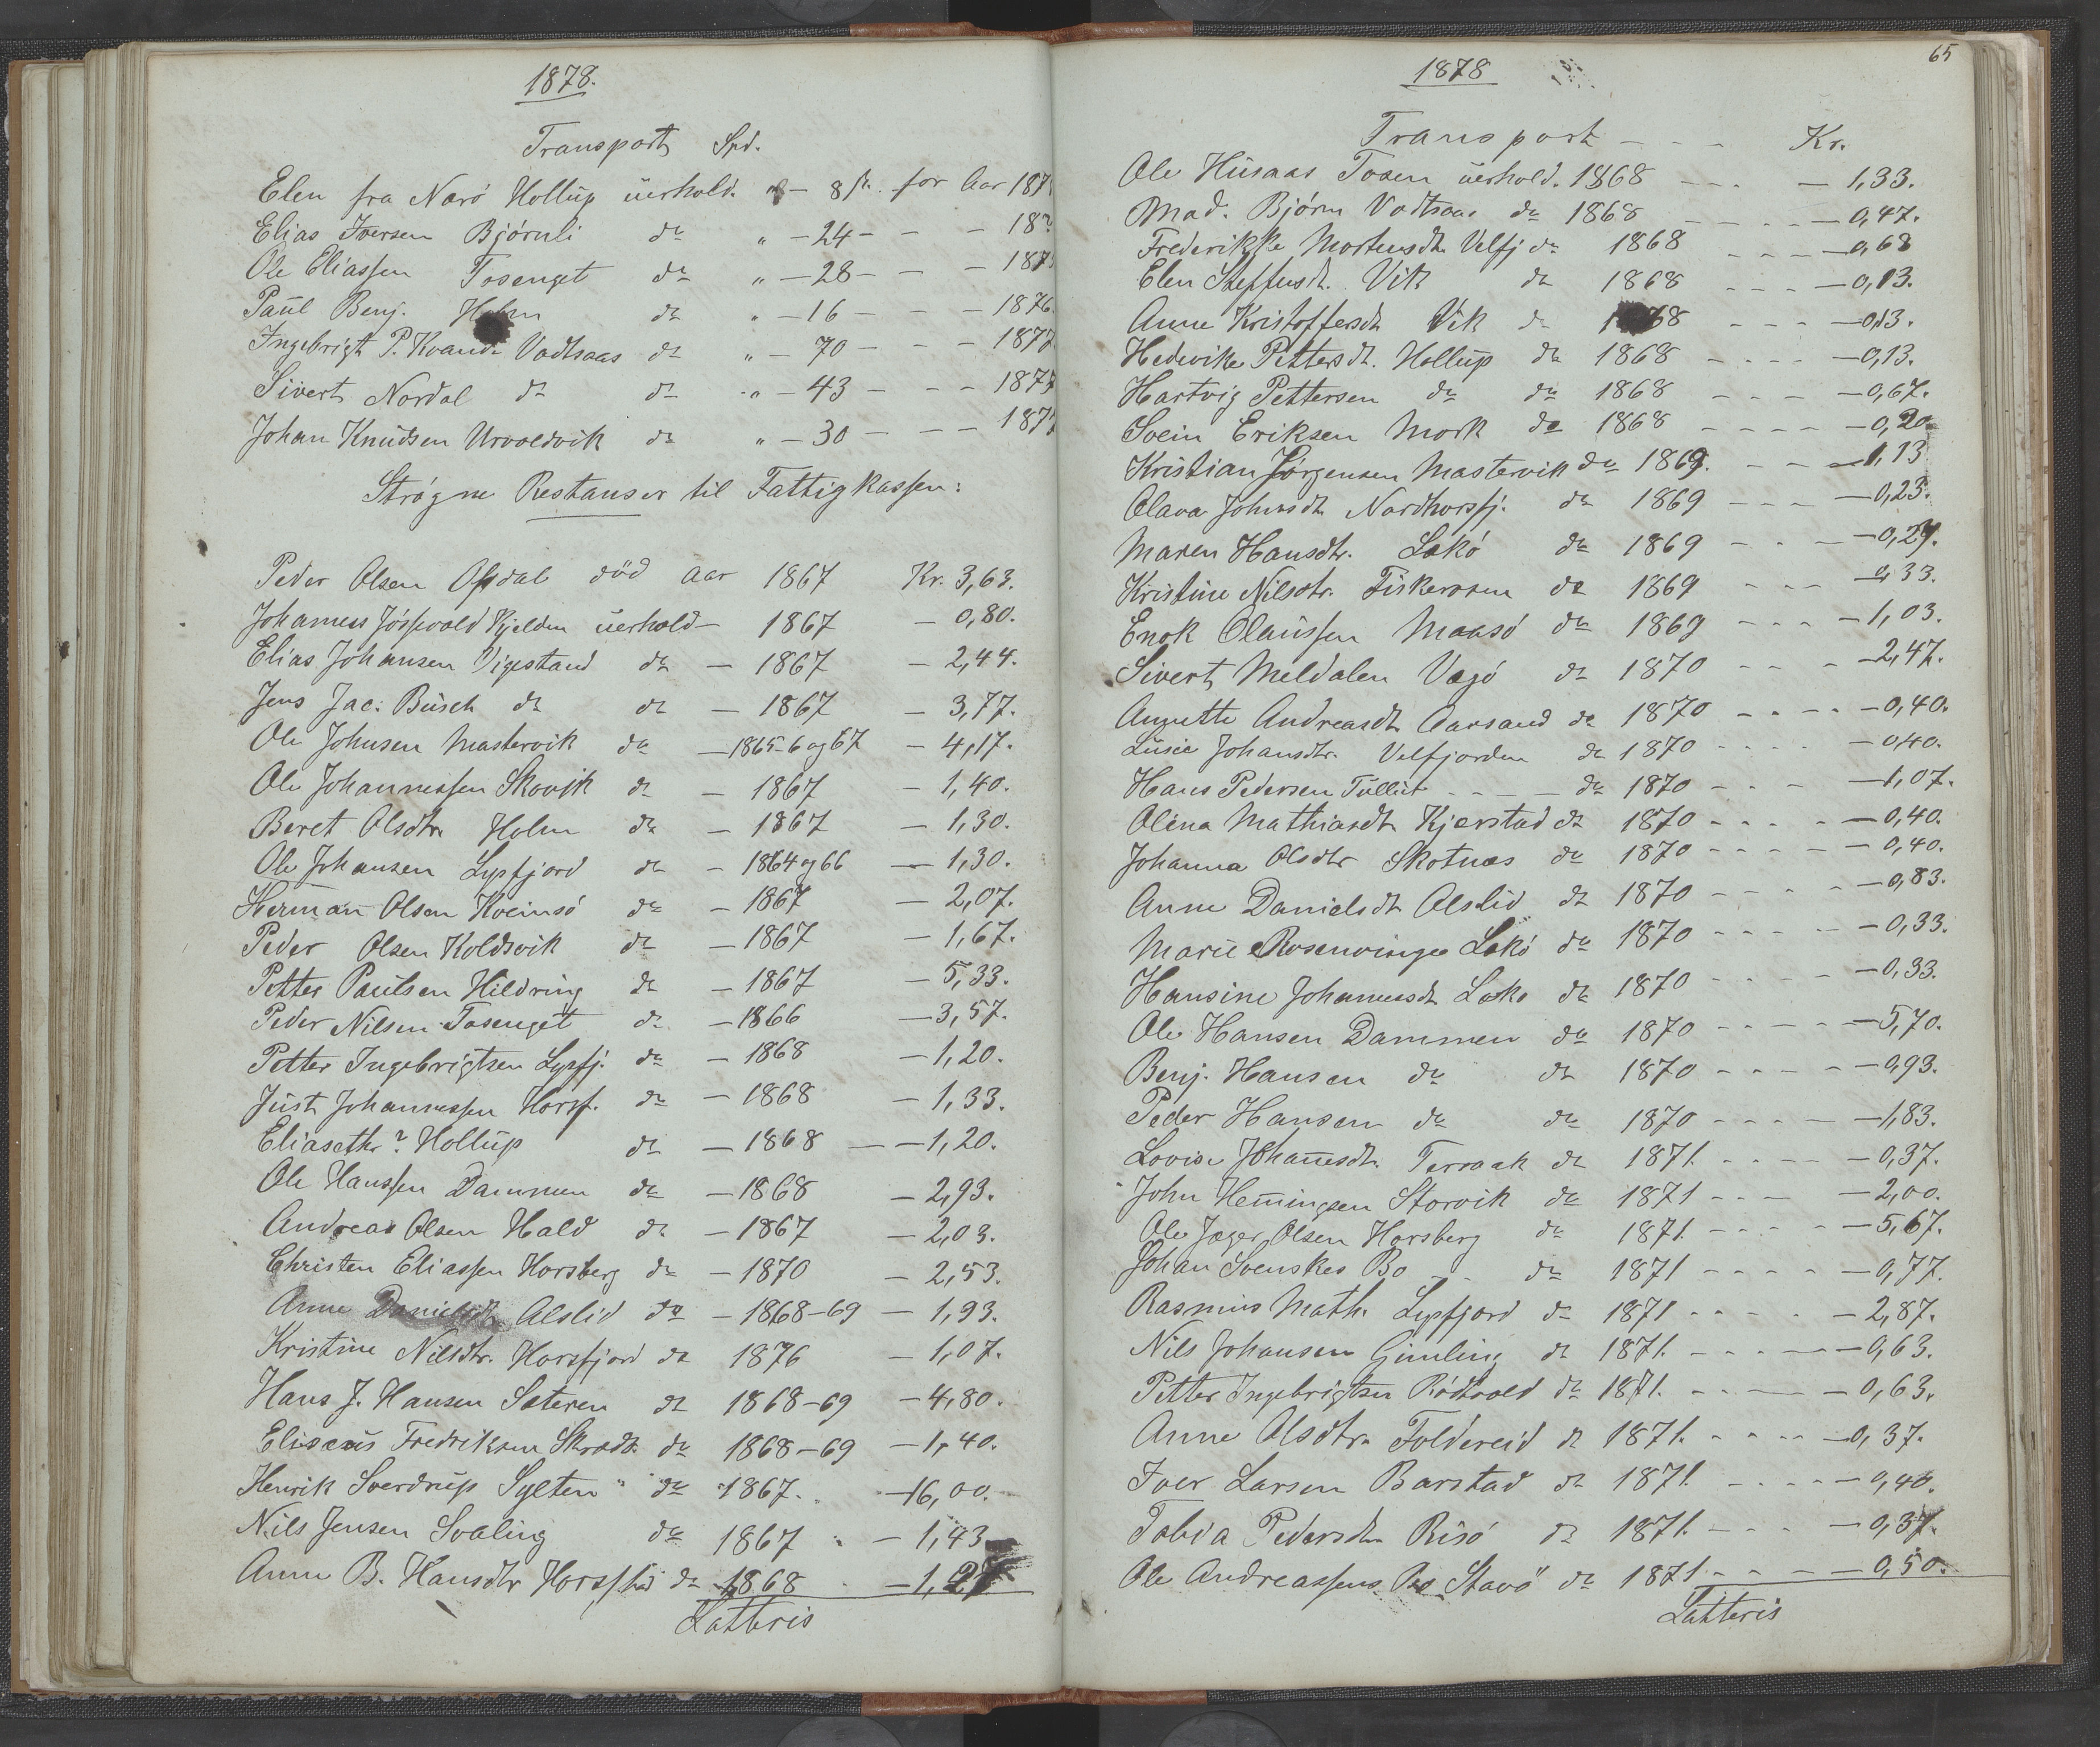 1878.
Transport Spd.
Elen fra Narö Hollup uerhold. " - 8 ſk. for Aar 187
Elias Iversen Björnli do " - 24 - - - 18
Ole Eliasſen Tosenget do " - 28 - - - 187
Paul Benj. Holm do " - 16 - - - 1876.
Ingebrigt P. Kvande Vadtsaas do " - 70 - - - 1877
Sivert Nordal do do " - 43 - - - 1877
Johan Knudsen Urvoldvik do " - 30 - - - 187
Strögne Restanser til Fattigkasſen:
Peder Olsen Opdal död Aar 1867 Kr. 3,63.
Johannes Jösſevold Kjelden uerhold - 1867 - 0,80.
Elias Johansen Vigestand do - 1867 - 2,44.
Jens Jac: Busch do do - 1867 - 3,77.
Ole Johnsen Mastervik do - 1865-6 og 67 - 4,17.
Ole Johannesſen Skovik do - 1867 - 1,40.
Beret Olsdtr Holm do - 1867 - 1,30.
Ole Johansen Lysfjord do - 1864 og 66 - 1,30.
Herman Olsen Kveinsö do - 1867 - 2,07.
Peder Olsen Koldsvik do - 1867 - 1,67.
Petter Paulsen Hildring do - 1867 - 5,33.
Peder Nilsen Tosenget do - 1866 - 3,57.
Petter Ingebrigtsen Lysfj. do - 1868 - 1,20.
Just Johannesſen Horsf. do - 1868 - 1,33.
Eliaseth? Hollup do - 1868 - 1,20.
Ole Hansſen Dammen do - 1868 - 2,93.
Andreas Olsen Hald do - 1867 - 2,03.
Christen Eliasſen Horsberg do - 1870 - 2,53.
Anne Danielsdtr Alslid do - 1868-69 - 1,93.
Kristine Nilsdtr. Horsfjord do 1876 - 1,07.
Hans J. Hansen Sæteren do 1868-69 - 4,80.
Eliseus Fredriksen do 1868-69 - 1,40.
Henrik Sverdrup Sylten do 1867. - 16,00.
Nils Jensen Svaling do 1867 - 1,43
Anne B. Hansdtr do 1868 - 1,27
Latteris
65
1878
Transport - - - Kr.
Ole Husaas Tosen uerhold. 1868 - - - 1,33.
Mad. Björn Vadtsaas do 1868 - - - 0,47.
Frederikke Mortensdtr Velfj do 1868 - - - 0,68
Elen Steffensdt. Vik do 1868 - - - 0,13.
Anne Kristoffersdt Vik do 1868 - - - 0,13.
Hedevike Pettersdt. Hollup do 1868 - - - 0,13.
Hartvig Pettersen do do 1868 - - - 0,67.
Svein Eriksen Mork do 1868 - - - 0,20.
Kristian Jörgensen Mastervik do 1869. - - - 1,13
Olava Johnsdt Nordhorsfj. do 1869 - - - 0,23.
Maren Hansdtr. Lekö do 1869 - - - 0,29.
Kristine Nilsdtr. Fiskerosen do 1869 - - - 0,33.
Enok Olausſen Maasö do 1869 - - - 1,03.
Sivert Meldalen Vegö do 1870 - - - 2,47.
Annette Andreasdt Aarsand do 1870 - - - 0,40.
Lusie Johansdtr. Velfjorden do 1870 - - - 0,40.
Hans Pedersen Tullut - - - do 1870 - - - 1,07.
Olina Mathiasdt Kjerstad do 1870 - - - 0,40.
Johanna Olsdtr Skotnes do 1870 - - - 0,40.
Anne Danielsdt Alslid do 1870 - - - 0,83.
Marie Rosenvinge Lekö do 1870 - - - 0,33.
Hansine Johannesdt Lekö do 1870 - - - 0,33.
Ole Hansen Dammen do 1870 - - - 5,70.
Benj. Hansen do do 1870 - - - 0,93.
Peder Hansen do do 1870 - - - 1,83.
Lovise Johannesdt. Terraak do 1871. - - - 0,37.
John Hemingsen Storvik do 1871 - - - 2,00.
Ole Jæger Olsen Horsberg do 1871. - - - 5,67.
Johan Svenskes Bo - - do 1871 - - - 0,77.
Rasmus Math. Lysfjord do 1871 - - - 2,87.
Nils Johansen Gimling do 1871. - - - 0,63.
Petter Ingebrigtsen Rödvold do 1871. - - - 0,63.
Anne Olsdtr. Foldereid do 1871. - - - 0,37.
Iver Larsen Barstad do 1871. - - - 0,40.
Tobia Pedersdtr Risö do 1871. - - - 0,37.
Ole Andreasſens Bo Stavö do 1871 - - - 0,50.
Latteris